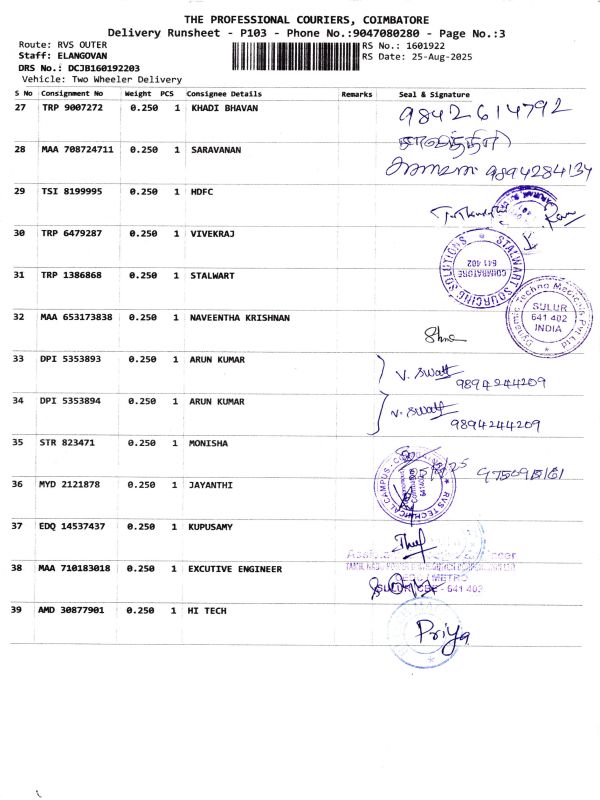 THE PROFESSIONAL COURIERS, COIMBATORE
Delivery Runsheet - P103 - Phone No.:9047080280 - Page No.:3
Route: RVS OUTER RS No.: 1601922
Staff: ELANGOVAN RS Date: 25-Aug-2025
DRS No.: DCJB160192203
Vehicle: Two Wheeler Delivery
S No Consignment No Weight PCS Consignee Details Remarks Seal & Signature
27 TRP 9007272 0.250 1 KHADI BHAVAN 9842614792
28 MAA 708724711 0.250 1 SARAVANAN 9894284134
29 TSI 8199995 0.250 1 HDFC
30 TRP 6479287 0.250 1 VIVEKRAJ
31 TRP 1386868 0.250 1 STALWART
STALWART SOURCING SOLUTIONS
COIMBATORE
641 402
Dynamic Techno Medicals Pvt Ltd
SULUR
641 402
INDIA
32 MAA 653173838 0.250 1 NAVEENTHA KRISHNAN
33 DPI 5353893 0.250 1 ARUN KUMAR V. Swati
9894244209
34 DPI 5353894 0.250 1 ARUN KUMAR V. Swati
9894244209
35 STR 823471 0.250 1 MONISHA
RVS TECHNICAL CAMPUS
36 MYD 2121878 0.250 1 JAYANTHI
37 EDQ 14537437 0.250 1 KUPUSAMY
38 MAA 710183018 0.250 1 EXCUTIVE ENGINEER
METRO
SULUR, CBE - 641 402
39 AMD 30877901 0.250 1 HI TECH
Priya